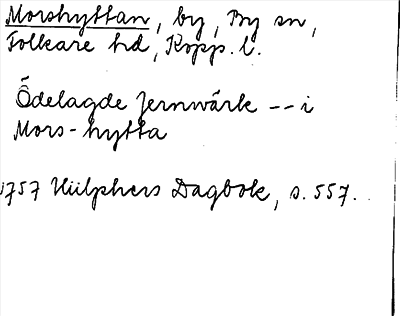 Morshyttan, by, By sn,
Folkare hd, Kopp. l.
Ödelagde Jernwärk -- i
Mors-hytta
1757 Hülphers Dagbok, s. 557.